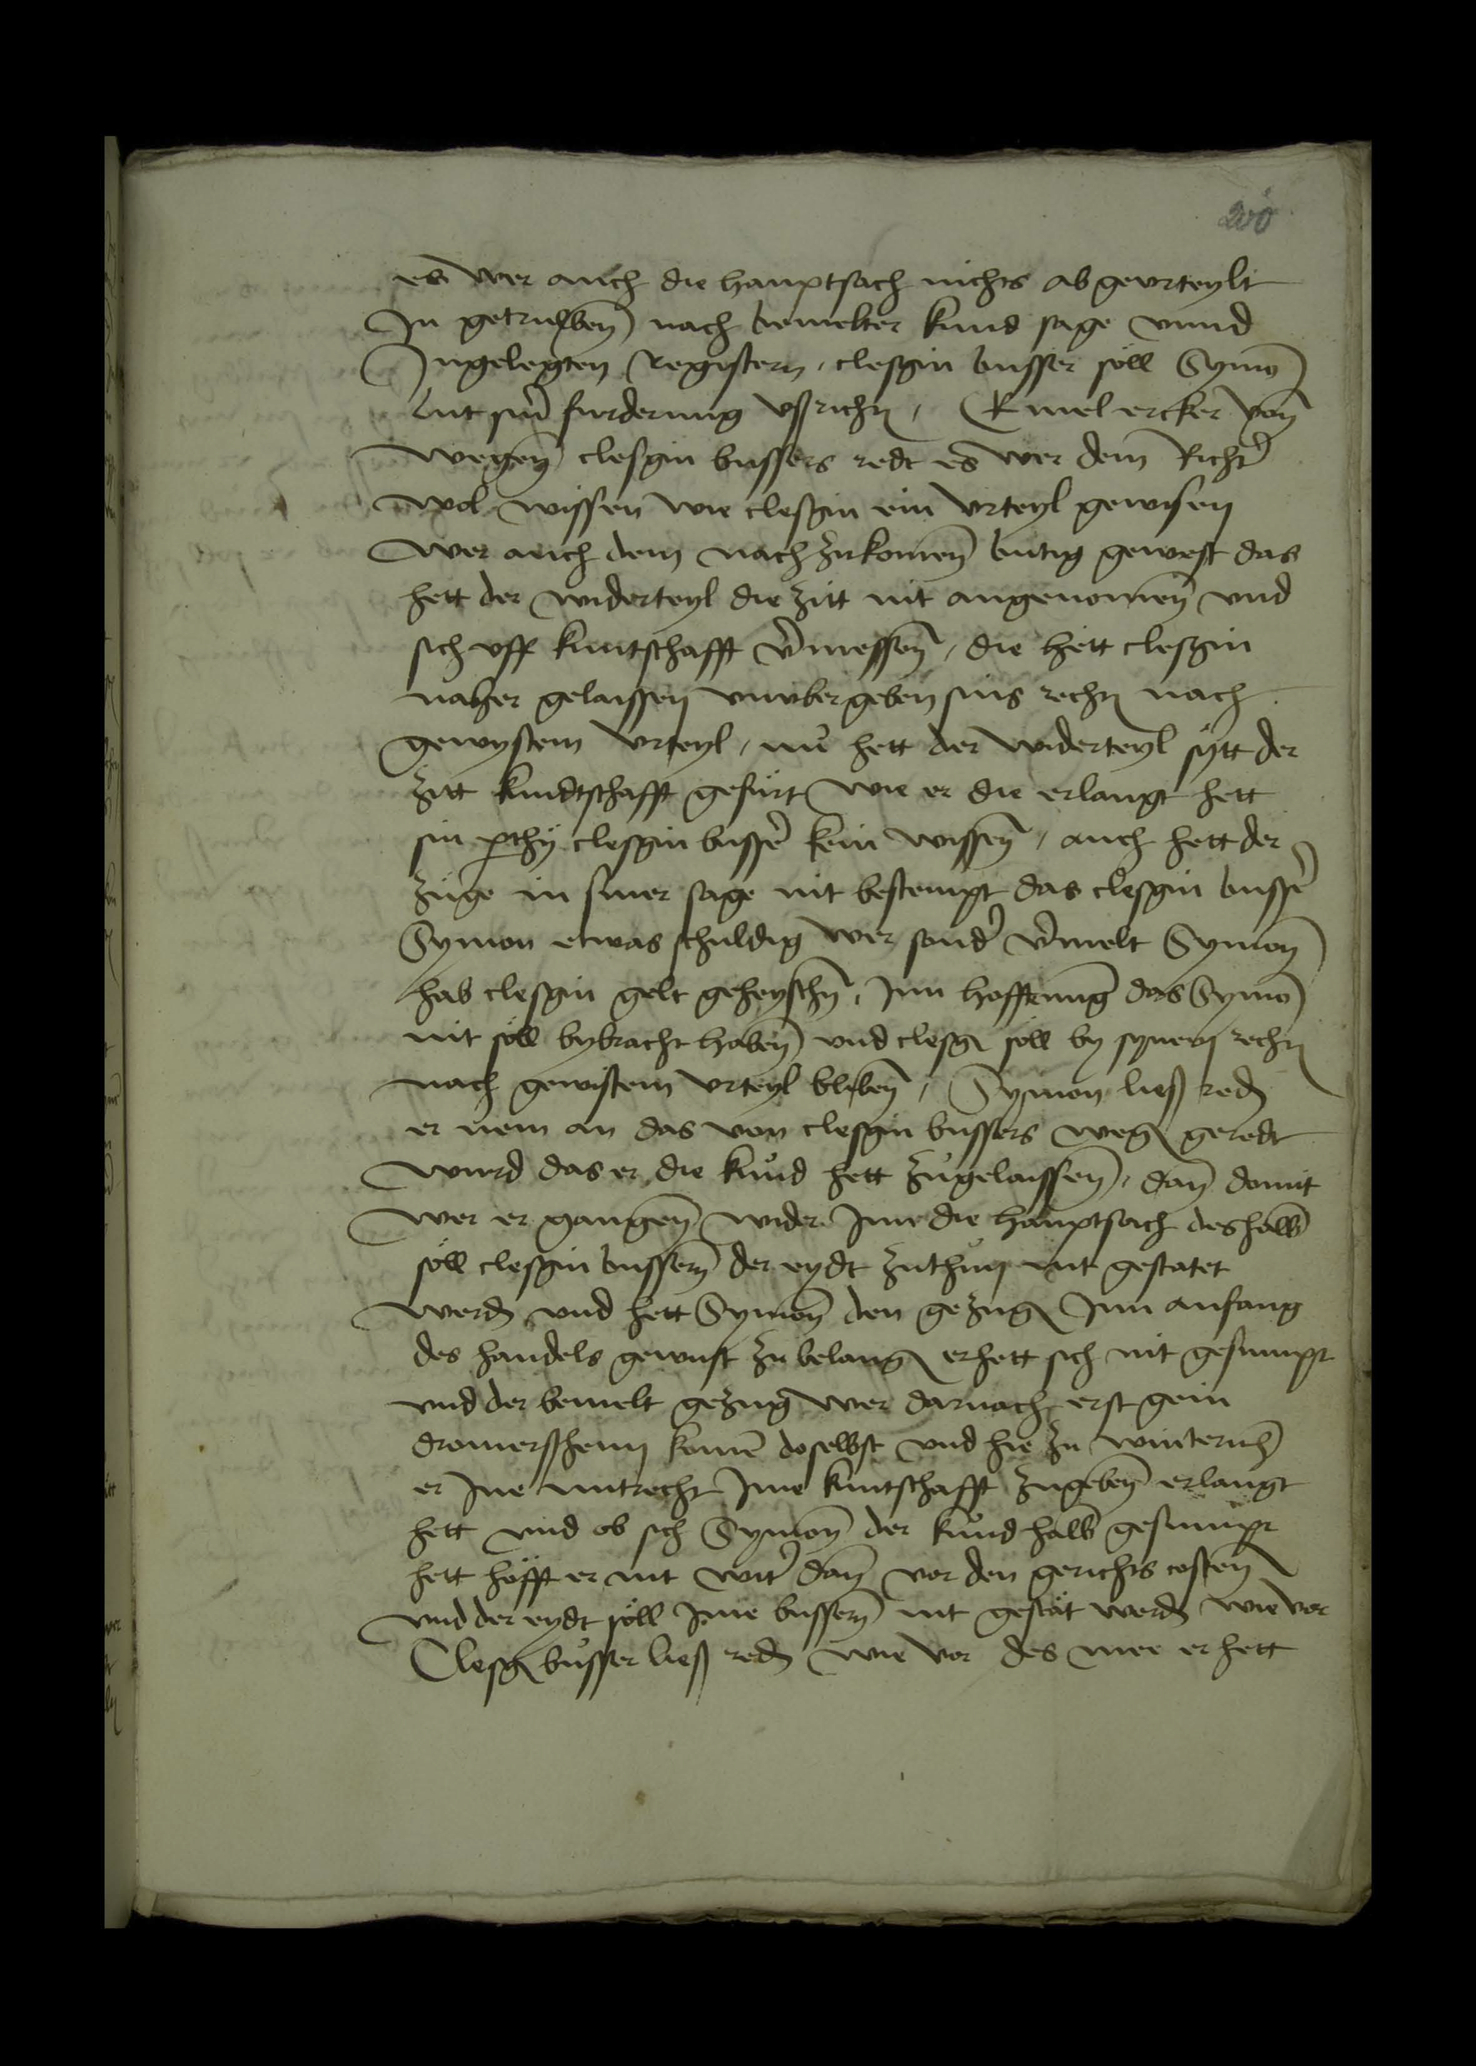 200
es wer auch die hauptsach nichts ab geurteylt
In getruwen nach bemelter kund sage vnnd
Ingelegten Registern, clesgin busser söll Symo̅
lut sin̅ furderung vßricht̅, Emel ercker von
wegen̅ clesgin bussers redt es wer dem Richt̅
wol wissen wie clesgin ein vrteyl gewisen
wer auch dem nach zukomen̅ butig gewest das
hett der widerteyl die zitt nit angenomen̅ vnd
sich vff kuntschafft v̅messen̅, die hett clesgin
naher gelaissen vnubergeben sins recht̅ nach
gewystem vrteyl, nů hett der widerteyl sÿtt der
zitt kundtschafft gefürt wie er die erlangt hett
sin p̅thÿ clesgin busse̅ kein wissen̅, auch hett der
züge in siner sage nit bestempt das clesgin busse̅
Symon etwas schuldig wer sond̅ v̅melt Symon
hab clesgin gelt geheyschn̅, Inn hoffenung das Symo̅
nit söll bybracht haben̅ vnd clesg̅ söll by synem recht̅
nach gewistem vrteyl bliben̅, Symon ließ red̅
er nem an das von clesgin bussers weg̅ geredt
wurd das er die kůnd hett zůgelaissen̅, dan̅ domit
wer er gangen̅ wider Ime die hauptsach deshalb̅
söll clesgin bussern̅ der eydt zuthun nit gestatet
werd̅ vnd hett Symon̅ den gezug̅ Inn anfang
des handels gewust zu belang̅ er hett sich nit gesumpt
vnd der bemelt gezug wer darnach erst gein
dromerßheim kome̅ doselbst vnd hie zu winterh̅
er Ine mitrecht Ime kuntschafft zugeben̅ erlangt
hett vnd ob sich Symon̅ der kůnd halb̅ gesumpt
hett höfft er nit wit̅ dan̅ vor den gerichts costen̅
vnd der eydt söll Ime bussern̅ nit gestat werd̅ wie vor
Clesg̅ bůsser ließ red̅ wie vor des mee er hett